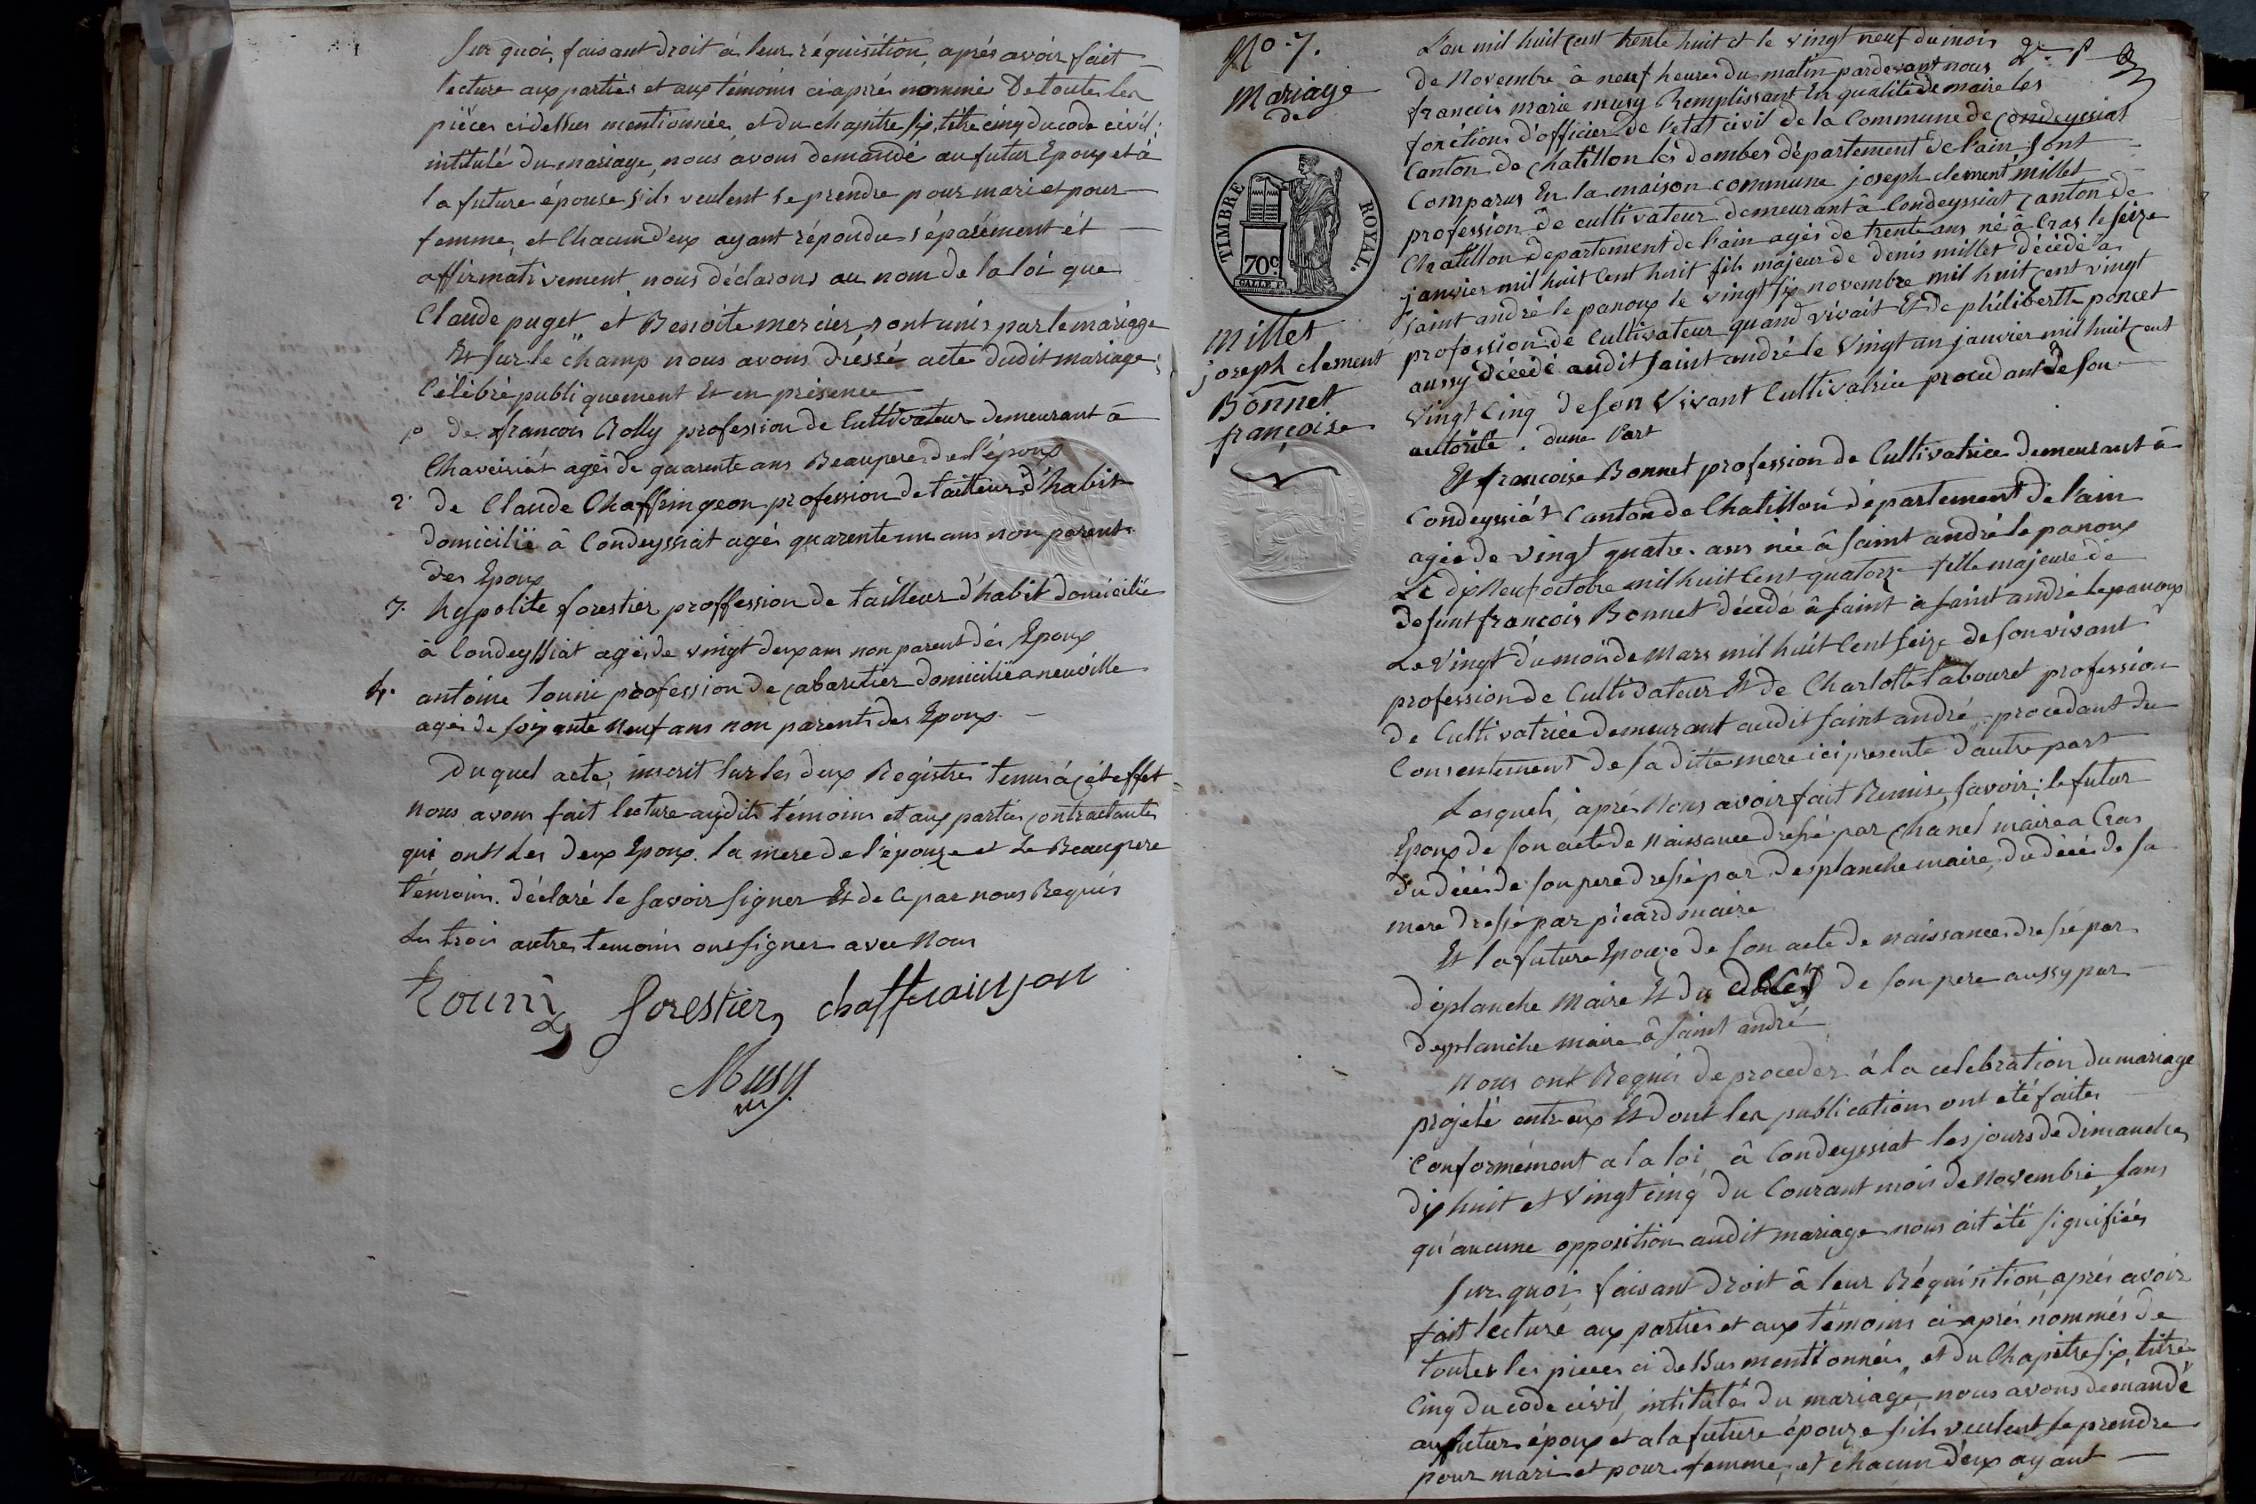 Sur quoi, faisant droit à leur réquisition, après avoir fait
lecture aux parties et aux témoins ci après nommés De toutes les
pièces ci dessus mentionnées, et du chapitre six, titre cinq du code civil;
intitulé du mariage, nous avons demandé au futur Epoux et à
la future épouse s'ils veulent se prendre pour mari et pour
femme, et Chacun d'eux ayant répondu séparément et
affirmativement, nous déclarons au nom de la loi que
Claude puget et Benoite mercier sont unis par le mariage
Et sur le champ nous avons dréssé acte dudit mariage,
Célébré publiquement Et en présence
1o de francois Rolly profession de Cultivateur demeurant à
Chaveiriat agés de quarente ans Beaupere de l'époux
2. de Claude Chaffringeon profession de tailleur d'habit
domicilié à Condeyssiat agés quarente un ans non parent
des Epoux
3. hypolite forestier proffession de tailleur d'habit domicilié
à Condeyssiat agés de vingt deux ans non parent des Epoux
4. antoine Tourni profession de cabaretier domicilié a neuville
agés de soixante Neuf ans non parents des Epoux.
Duquel acte, inscrit sur les deux Registres tenus à cet effet
nous avons fait lecture auxdits témoins et aux parties contractantes
qui ont Les deux Epoux. la mere de l'épouze et Le Beaupere
témoins. déclaré le savoir signer Et de Ce par nous Requis
Les trois autres temoins ont signer avec Nous
Tourni forestier chaffraingon
Musy
No. 7.
Mariage
de
TIMBRE ROYAL.
70c.
Millet
joseph clement
Bonnet
françoise
L'an mil huit cent trente huit et le vingt neuf du mois
de Novembre à neuf heures du matin pardevant nous
francois marie musy Remplissant En qualité de maire les
fonctions d'officier de l'etat civil de la Commune de Condeyssiat
Canton de Chatillon les dombes département de l'ain sont
Comparus En la maison commune joseph clement millet
profession de cultivateur demeurant à Condeyssiat Canton de
Chatillon departement de l'ain agés de trente ans né à Cras le seize
janvier mil huit Cent huit fils majeur de denis millet décédé à
saint andré le panoux le vingt six novembre mil huit cent vingt
profession de Cultivateur quand vivait Et de philibertte poncet
aussy décédé audit saint andré le Vingt un janvier mil huit cent
vingt Cinq de son Vivant Cultivatrice procedant de son
autorité. dune Part
Et francoise Bonnet profession de Cultivatrice demeurant à
Condeyssiat Canton de Chatillon département de l'ain
agée de vingt quatre ans née à saint andré le panoux
Le dix Neuf octobre mil huit Cent quatorze fille majeure de
defunt francois Bonnet décédé à saint à saint andré le panoux
Le Vingt du mois de Mars mil huit Cent seize de son vivant
profession de Cultivateur Et de Charlotte tabouret profession
de Cultivatrice demeurant audit saint andré, procedant du
Consentement de sa ditte mere ici presente d'autre part
Lesquels, après Nous avoir fait Remise, savoir: le futur
Epoux de son acte de Naissance dressé par Chanel maire a Cras
du décés de son pere dressé par Desplanche maire, du décés de sa
mere dressé par picard maire
Et la future Epouze de son acte de naissance dressé par
déplanche Maire Et du décés de son pere aussy par
desplanche maire à saint andré
Nous ont Requis de proceder à la celebration du mariage
projeté entr eux Et dont les publications ont été faites
Conformémont a la loi, à Condeyssiat les jours de dimanches
dix huit et Vingt cinq du Courant mois de Novembre sans
qu'aucune opposition audit mariage nous ait été signifiée
Sur quoi faisant droit à leur Réquisition, après avoir
fait lecture aux parties et aux témoins ci après nommés de
toutes les pieces ci dessus mentionnées, et du Chapitre six, titre
Cinq du code civil, intitulés du mariage, nous avons demandé
au futur époux et a la future épouze s'ils veulent se prendre
pour mari et pour femme, et chacun d'eux ayant